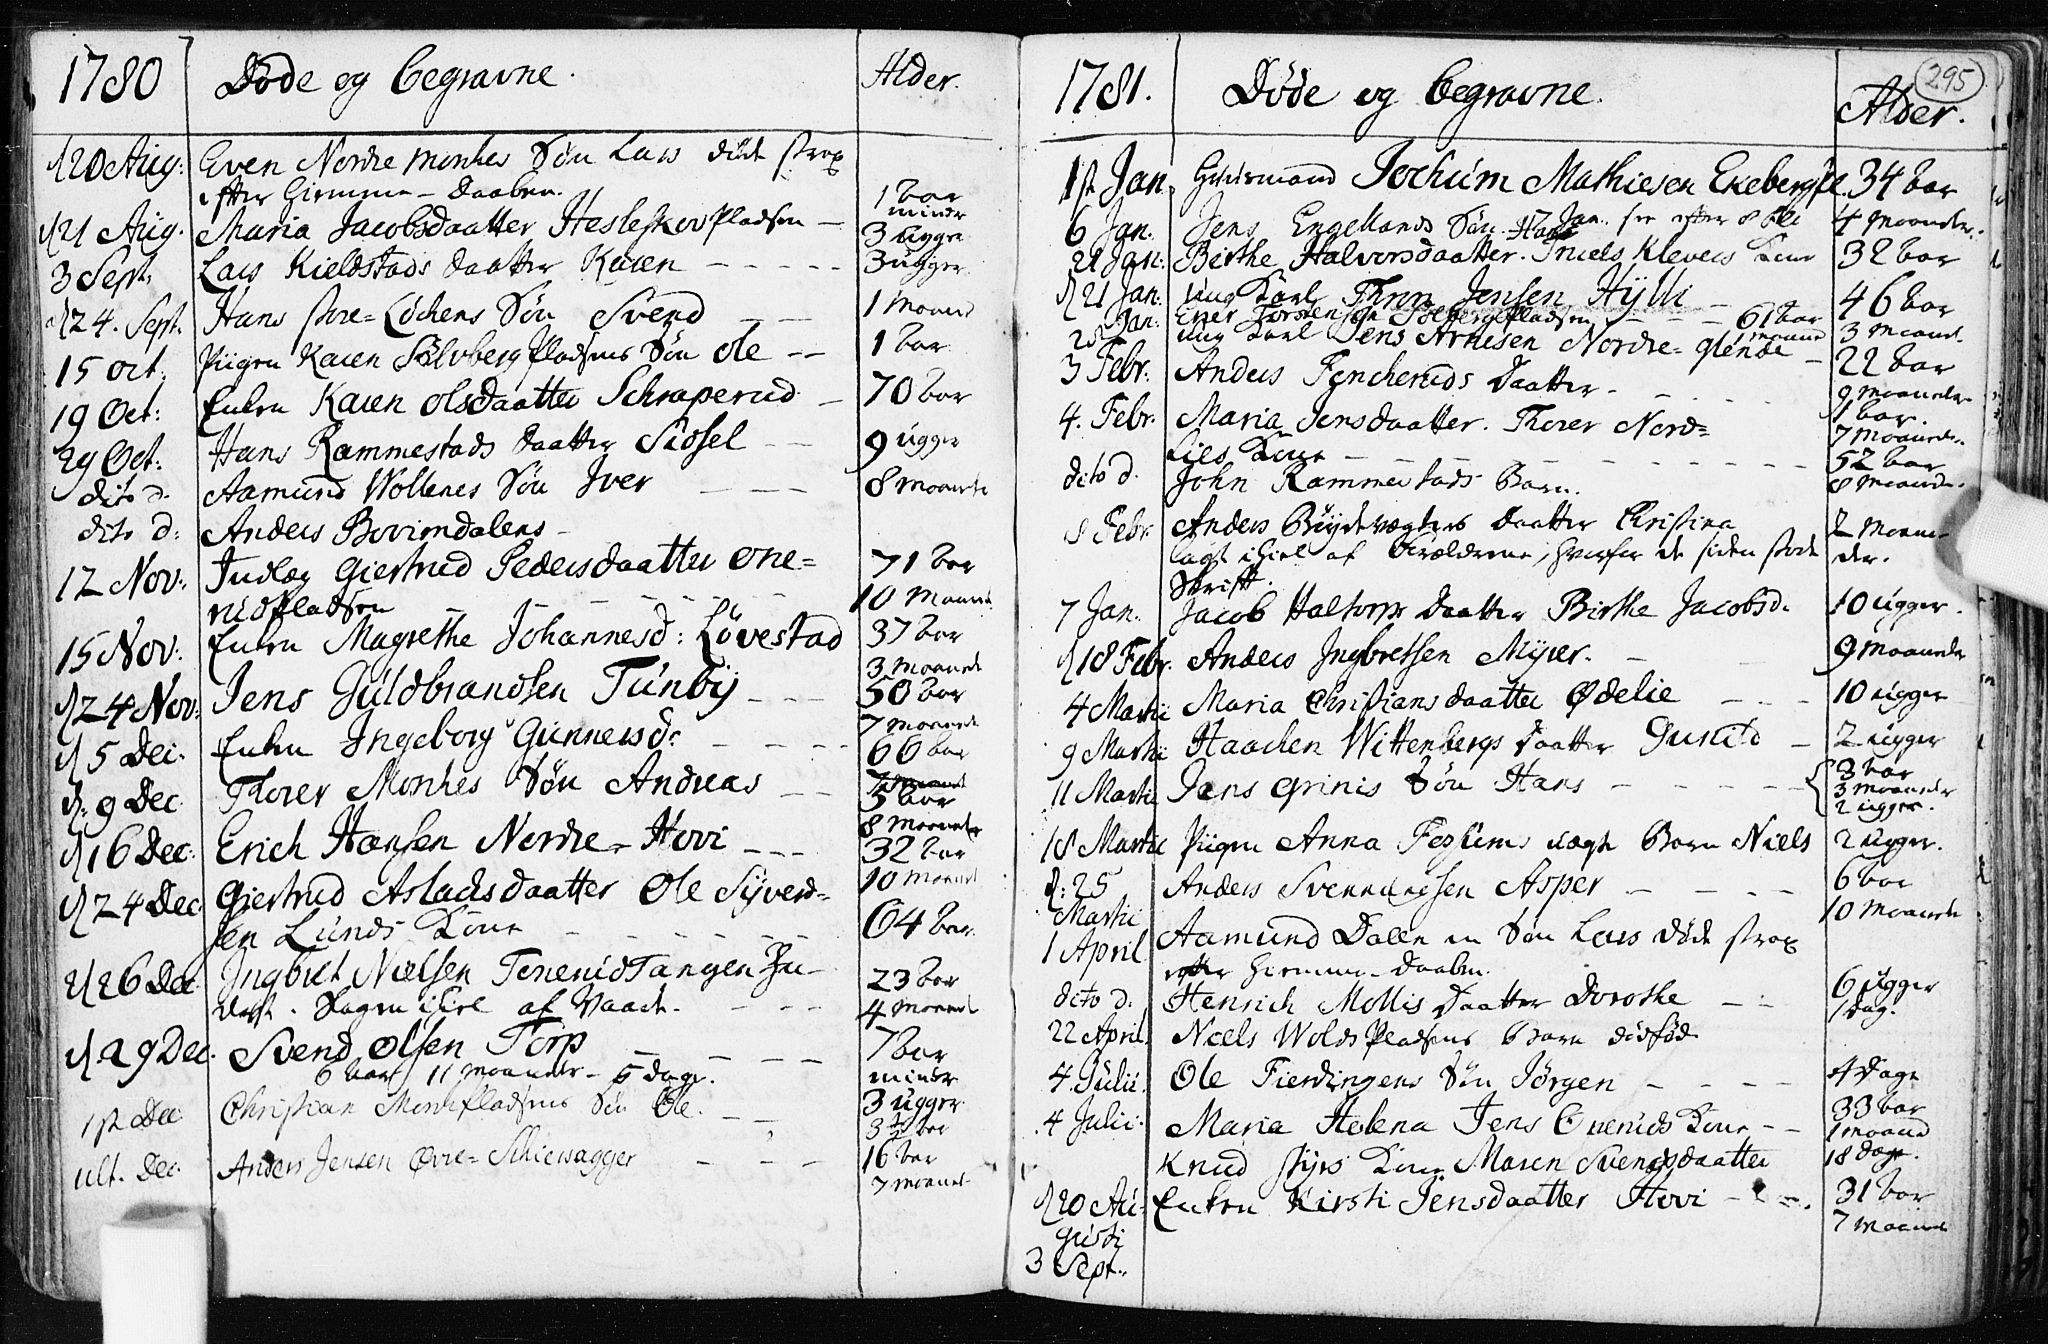 1780 Døde og begravne. Alder.
d 20 Aug: Even Nordre Monkes Søn Lars døde strax
efter Hiemme-Daaben.
d 21 Aug. Maria Jacobsdaatter Hesleskov Pladsen — 1 Aar mindr 3 ugger
3 Sept: Lars Kieldstads Daatter Karen - - - - - 3 ugger
d 24. Sept. Hans store-Løchens Søn Svend - - - 1 Maaned
15 oct. Piigen Karen Sølvberg Pladsens Søn Ole - - 1 Aar
19 Oct: Enken Karen Olsdaatter Schraperud - 70 Aar
29 Oct: Hans Rammestads Daatter Sidsel - - 9 ugger
dito d. Aamund Wollenes Søn Iver - - - 8 Maanede
dito d: Anders Bovimdalens -
12 Nov: Indlæg Giertrud Pedersdaatter One= 71 Aar
rudpladsen - - - - - - 10 Maaned
15 Nov: Enken Magrethe Johannesd: Løvestad 37 Aar
3 Maanede
d 24 Nov: Jens Guldbrandsen Tunby - - - 50 Aar
7 Maanede
d 5 Dec. Enken Ingeborg Gunnersd: - - - - 66 Aar
d: 9 Dec Thorer Monkes Søn Andreas - - 5 Aar
8 Maaneder
d 16 Dec: Erich Hansen Nordre-Hovi - - - 32 Aar
10 Maaned
d 24 Dec. Giertrud Aslachsdaatter Ole Syverd=
sen Lunds Kone - - - - - - 64 Aar.
d 26 Dec Ingbret Nielsen Tenerud Tangen 23 Aar
af Vaade. - - - 4 Maaned
d 29 Dec. Svend Olsen Torp - - - - 7 Aar
6 Aar 11 Maaneder - 5 Dage. mindr
1st Dec Christian Monkpladsens Søn Ole. - - 3 ugger
3½ Aar
ult. Dec. Anders Jensen Øvre-Schiersagger - - - 16 Aar
7 Maaned
295
1781. Døde og begravne. Alder.
1st Jan. Huusmand Jochum Mathiesen Ekebergpl. 34 Aar
6 Jan. Jens Engellands Søn 17 Jan. see efter 4 Maander.
21 Jan: Birthe Halvorsdaatter. Kone 32 Aar
d 21 Jan: ung Karl Thron Jensen Hylli - 46 Aar
Jan: Torstensen Solberg Pladsen - - - 61 Aar 3 Maaned.
ung Karl Jens Arnesen Nordre-Glende - 22 Aar
3 Febr. Anders Fencheruds Daatter - - - - 9 Maaneder
4. Febr. Maria Jensdaatter. Thorer Nord= 1 Aar.
7 Maaneder.
lies Kone - - - - - - - - 52 Aar
dito d. John Rammestads Barn. 8 Maaneder.
8 Febr Anders Bøydevægters Daatter Christina 2 Maane=
lagt ihiel af Forældrene, hvorfor de siden stode der.
Skrift.
7 Jan. Jacob Haltorps Daatter Birthe Jacobsd. 10 ugger.
d 18 Febr. Anders Ingbretsen Myrer. - - 9 Maaneder
4 Martii Maria Christiansdaatter Ødelie - - - 10 ugger
9 Martii Haachen Wittenbergs Daatter Gunild - 2 ugger
11 Martii Jens Grinis Søn Hans - - - - - 3 Aar
3 Maaneder
2 ugger.
18 Martii Piigen Anna Fossums uægte Barn Niels 2 ugger.
d: 25 Anders Svenningsen Asper - - - - 6 Aar
Martii 10 Maanede
1 April Aamund Dalen en Søn Lars døde strax
efter Hiemme-Daaben.
dito d: Henrich Mollis Daatter Dorothe - - 6 ugger
1 Dag.
22 April Niels Wolds Pladsens Barn dødfød
4 Julii. Ole Fierdingens Søn Jørgen - - - - 4 Dage
4 Julii. Maria Helena Jens Kone - - 33 Aar
1 Maaned
Knud Kone Maren Svendsdaatter 18 Dage.
d 20 Au= Enken Kirsti Jensdaatter Hovi - - - 31 Aar
gusti 7 Maaned
3 Sept.